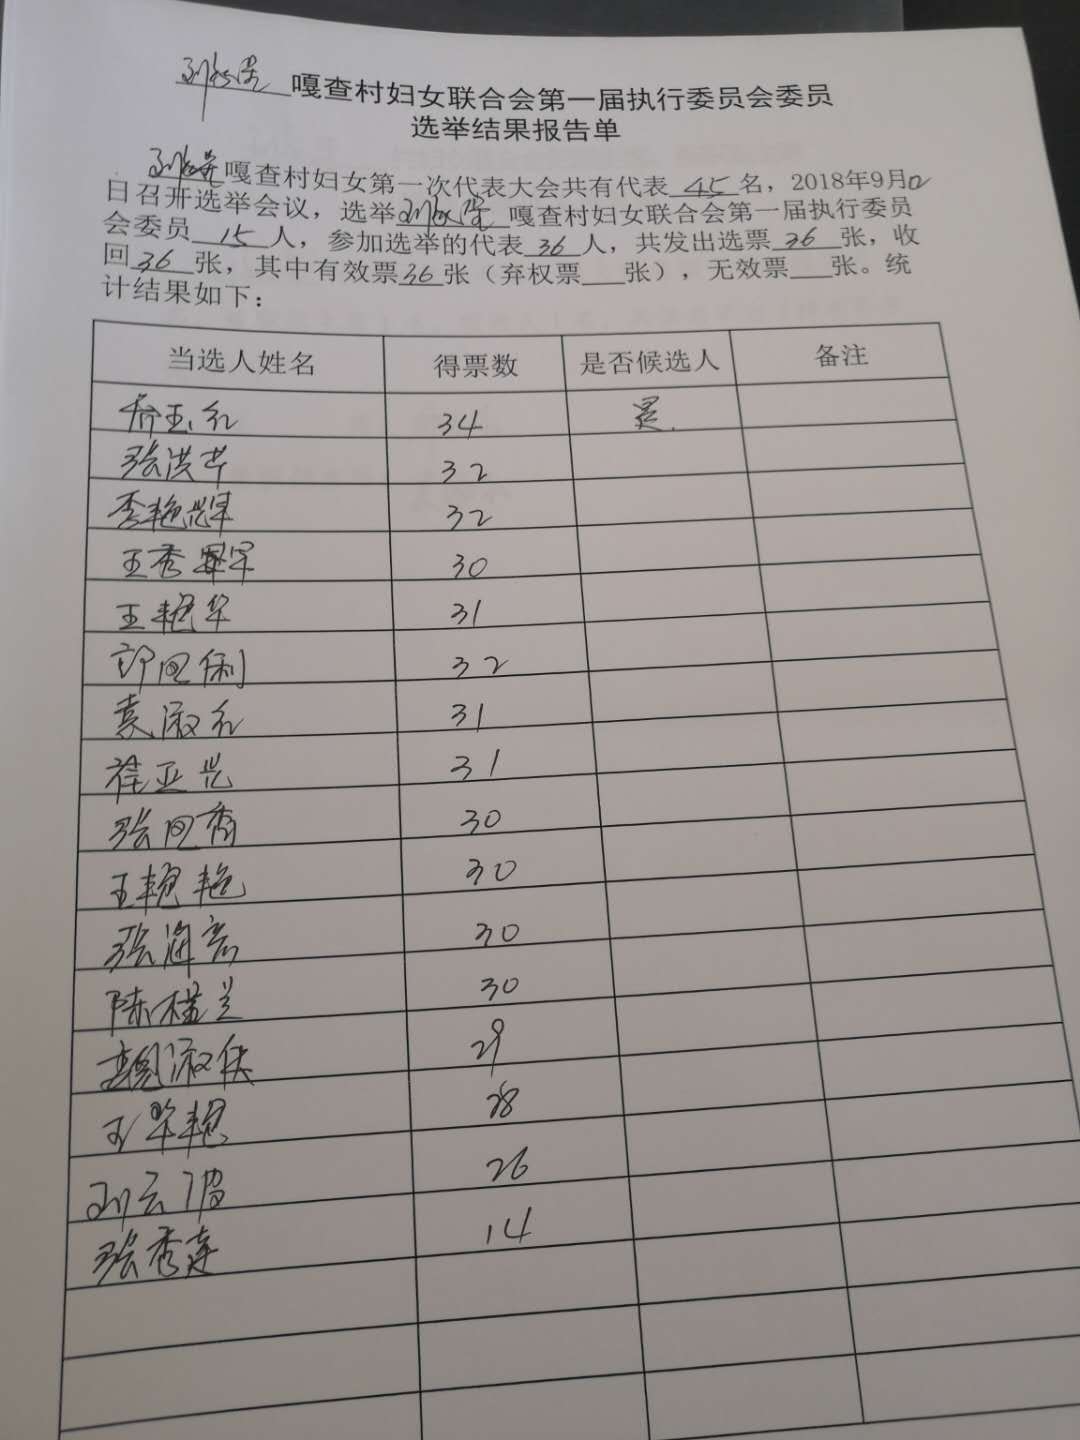 嘎查村妇女联合会第一届执行委员会委员
选举结果报告单
嘎查村妇女第一次代表大会共有代表 45 名，2018年9月
日召开选举会议，选举 嘎查村妇女联合会第一届执行委员
会委员 15 人，参加选举的代表 36 人，共发出选票 36 张，收
回 36 张，其中有效票 36 张（弃权票 张），无效票 张。统
计结果如下：
当选人姓名 得票数 是否候选人 备注
乔玉红 34 是
张洪苹 32
李艳辉 32
王秀 30
王艳华 31
邵四俐 32
袁淑红 31
崔亚兰 31
张四香 30
王艳艳 30
张海 30
陈桂兰 30
淑侠 29
王翠艳 28
刘云 26
张秀莲 14